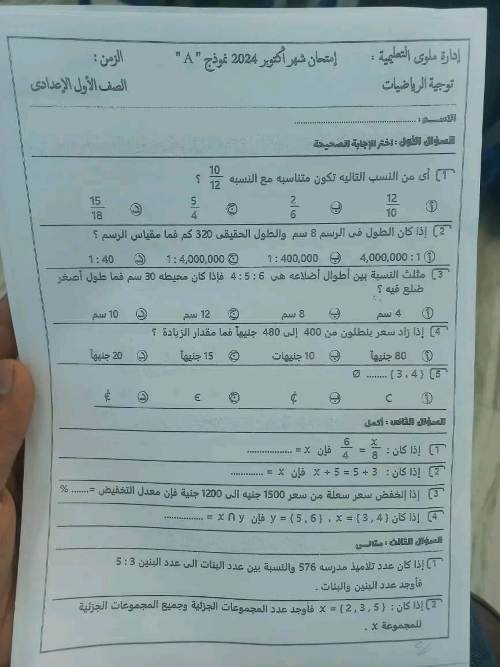 إدارة ملوى التعليمية : إمتحان شهر أكتوبر 2024 نموذج " A " الزمن :
توجية الرياضيات الصف الأول الإعدادى
الاســم : ........................................
السؤال الأول : اختر الإجابة الصحيحة
1 أى من النسب التاليه تكون متناسبه مع النسبه 10/12 ؟
أ 12/10 ب 2/6 ج 5/4 د 15/18
2 إذا كان الطول فى الرسم 8 سم والطول الحقيقى 320 كم فما مقياس الرسم ؟
أ 4,000,000 : 1 ب 1 : 400,000 ج 1 : 4,000,000 د 1 : 40
3 مثلث النسبة بين أطوال أضلاعه هى 6 : 5 : 4 فإذا كان محيطه 30 سم فما طول أصغر
ضلع فيه ؟
أ 4 سم ب 8 سم ج 12 سم د 10 سم
4 إذا زاد سعر بنطلون من 400 إلى 480 جنيهاً فما مقدار الزيادة ؟
أ 80 جنيهاً ب 10 جنيهات ج 15 جنيهاً د 20 جنيهاً
5 Ø ........ { 3 , 4 }
أ ⊂ ب ⊄ ج ∈ د ∉
السؤال الثانى : أكمل
1 إذا كان : x/8 = 6/4 فإن x = ..................
2 إذا كان : x + 5 = 5 + 3 فإن x = .............
3 إذا إنخفض سعر سعلة من سعر 1500 جنيه الى 1200 جنية فإن معدل التخفيض = ....... %
4 إذا كان x = { 3 , 4 } , y = { 5 , 6 } فإن x ∩ y = ................
السؤال الثالث :
1 إذا كان عدد تلاميذ مدرسه 576 والنسبة بين عدد البنات الى عدد البنين 3 : 5
فأوجد عدد البنين والبنات .
2 إذا كان : x = { 2 , 3 , 5 } فأوجد عدد المجموعات الجزئية وجميع المجموعات الجزئية
للمجموعة x .